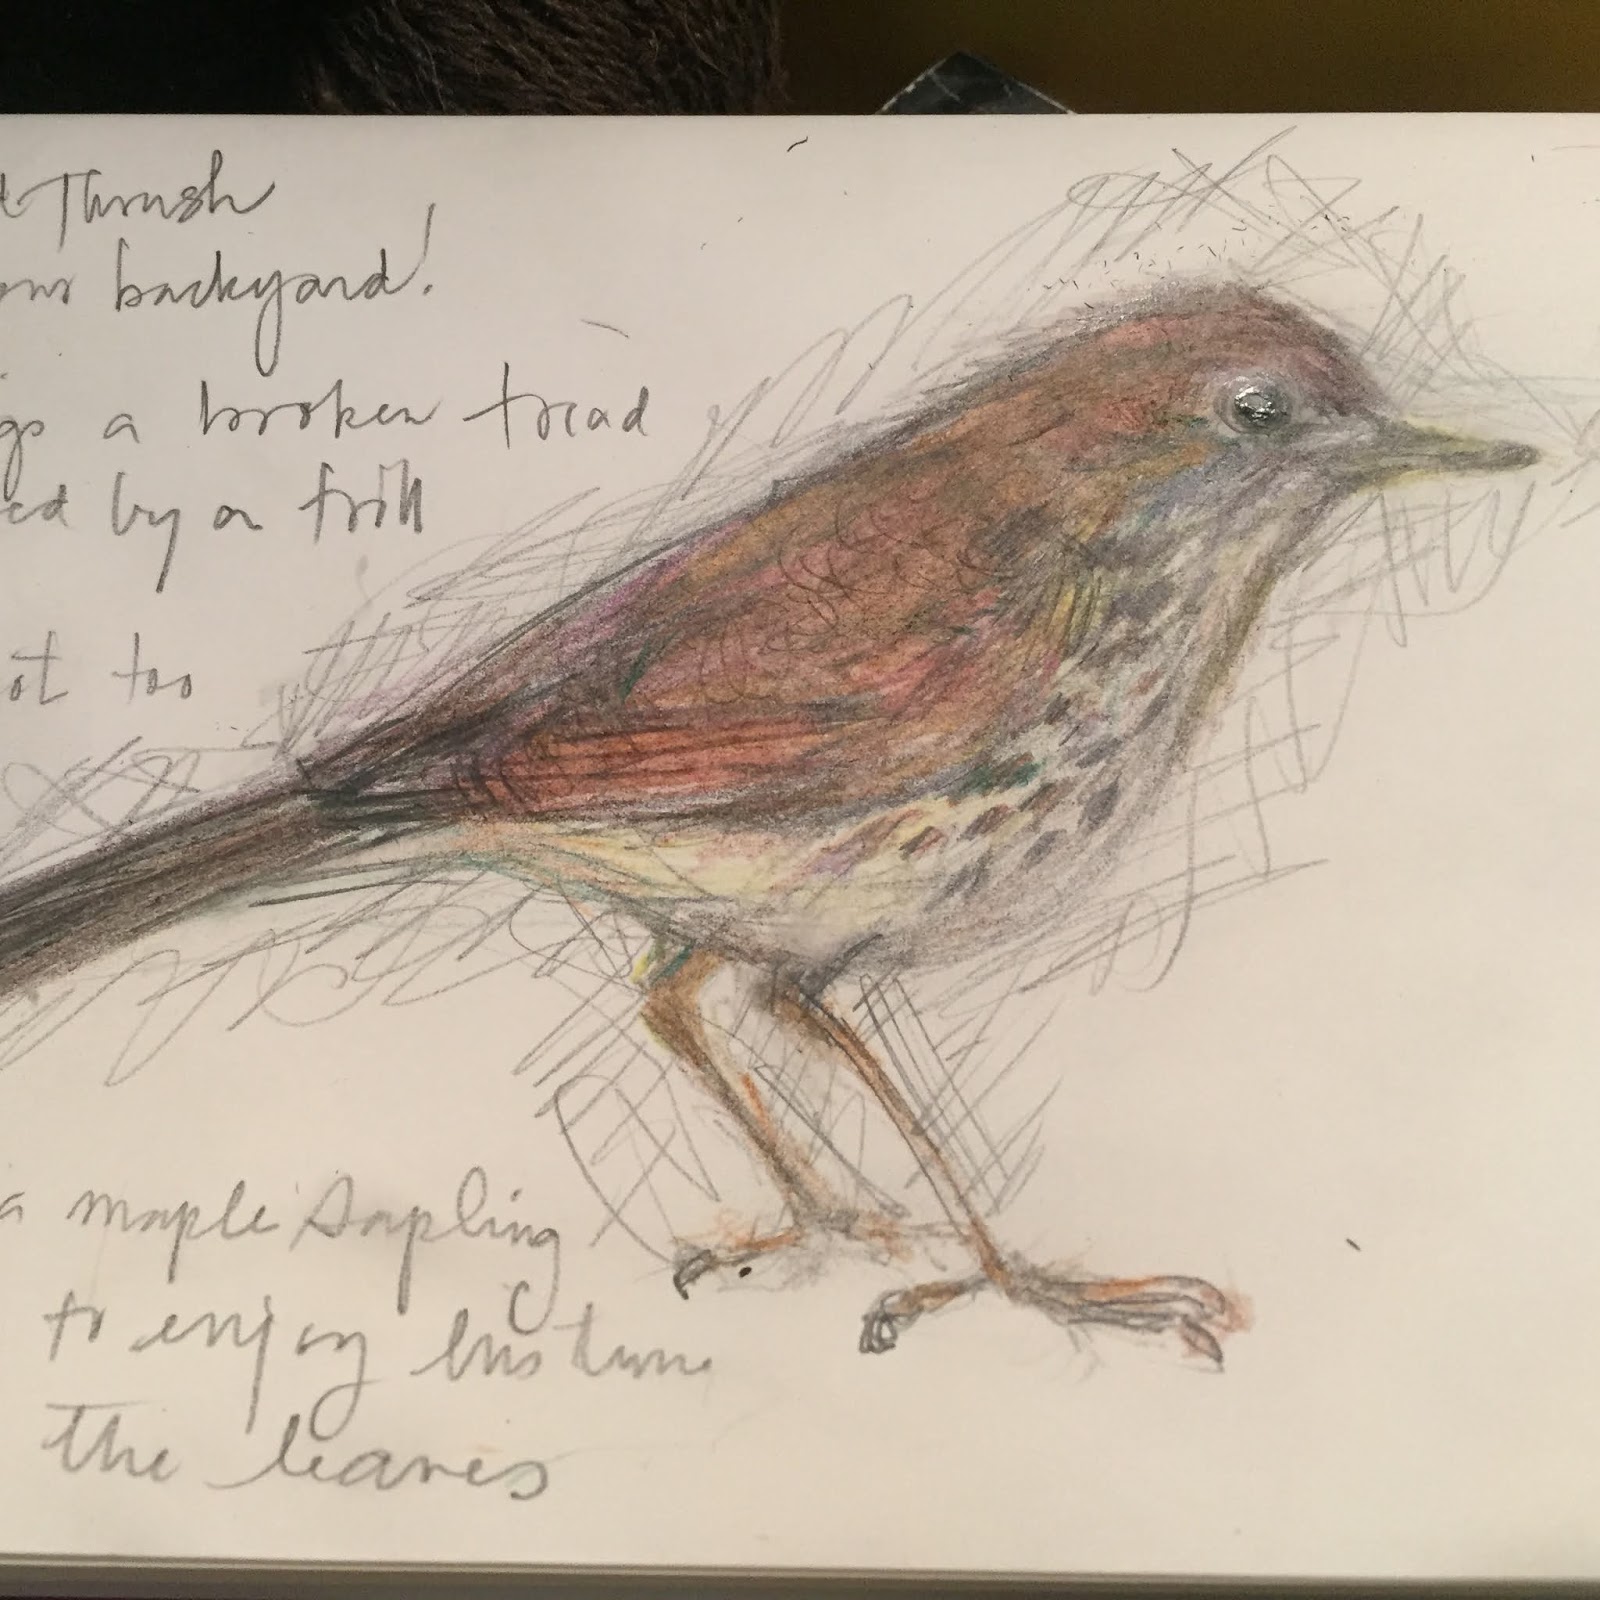 d Thrush
our backyard!
gs a broken triad
ed by a trill
ot too
a maple sapling
to enjoy his tune
the leaves